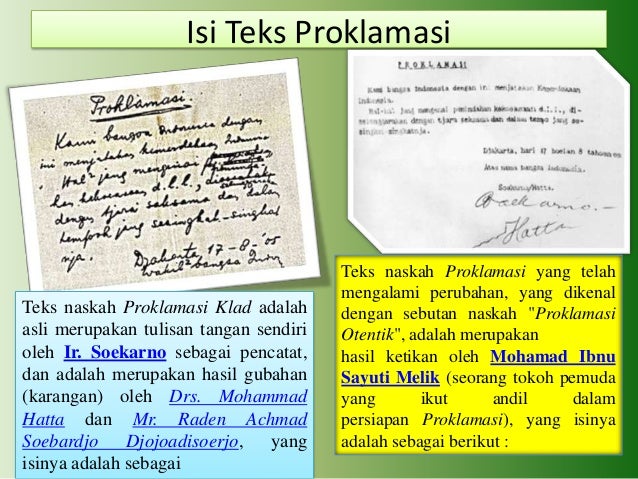 Isi Teks Proklamasi
Proklamasi.
Kami bangsa Indonesia dengan
ini menjatakan kemerdekaan Indonesia.
Hal² jang mengenai
kekoeasaan d.l.l.,
dengan tjara saksama dan dalam
tempoh jang sesingkat-singkat-
nja.
Djakarta 17-8-'05
Wakil² bangsa Indon
Teks naskah Proklamasi Klad adalah
asli merupakan tulisan tangan sendiri
oleh Ir. Soekarno sebagai pencatat,
dan adalah merupakan hasil gubahan
(karangan) oleh Drs. Mohammad
Hatta dan Mr. Raden Achmad
Soebardjo Djojoadisoerjo, yang
isinya adalah sebagai
PROKLAMASI
Kami bangsa Indonesia dengan ini menjatakan Kemerdekaan
Indonesia.
Hal-hal jang mengenai pemindahan kekoeasaan d.l.l., di-
selenggarakan dengan tjara seksama dan dalam tempo jang se-
singkat-singkatnja.
Djakarta, hari 17 boelan 8 tahoen
Atas nama bangsa Indonesia.
Soekarno/Hatta.
Soekarno.
Hatta
Teks naskah Proklamasi yang telah
mengalami perubahan, yang dikenal
dengan sebutan naskah "Proklamasi
Otentik", adalah merupakan
hasil ketikan oleh Mohamad Ibnu
Sayuti Melik (seorang tokoh pemuda
yang ikut andil dalam
persiapan Proklamasi), yang isinya
adalah sebagai berikut :